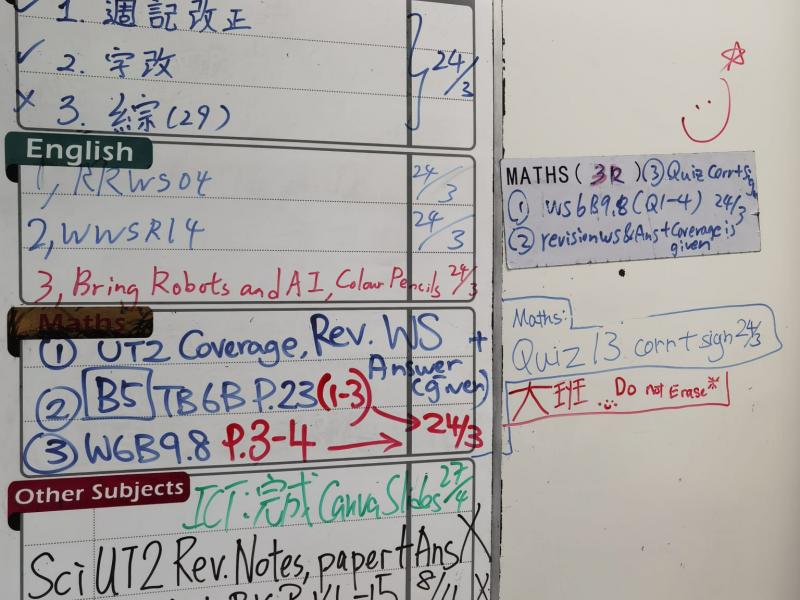 ✓ 1. 週記改正
✓ 2. 字改
24/3
× 3. 綜(29)
English
1, RRWS04 24/3
2, WWSR14 24/3
3, Bring Robots and AI, Colour Pencils 24/3
Maths
① UT2 Coverage, Rev. WS +
Answer
(given)
② B5 TB6B P.23(1-3)
③ W6B9.8 P.3-4 → 24/3
Other Subjects
ICT: 完成 Canva Slides 27/4
Sci UT2 Rev. Notes, paper + Ans X
8/4
MATHS( 3R ) ③ Quiz Corr+sig
① WS6B9.8(Q1-4) 24/3
② revision ws & Ans + Coverage is
given
Maths:
Quiz 13 corr+sign 24/3
大班 Do not Erase*